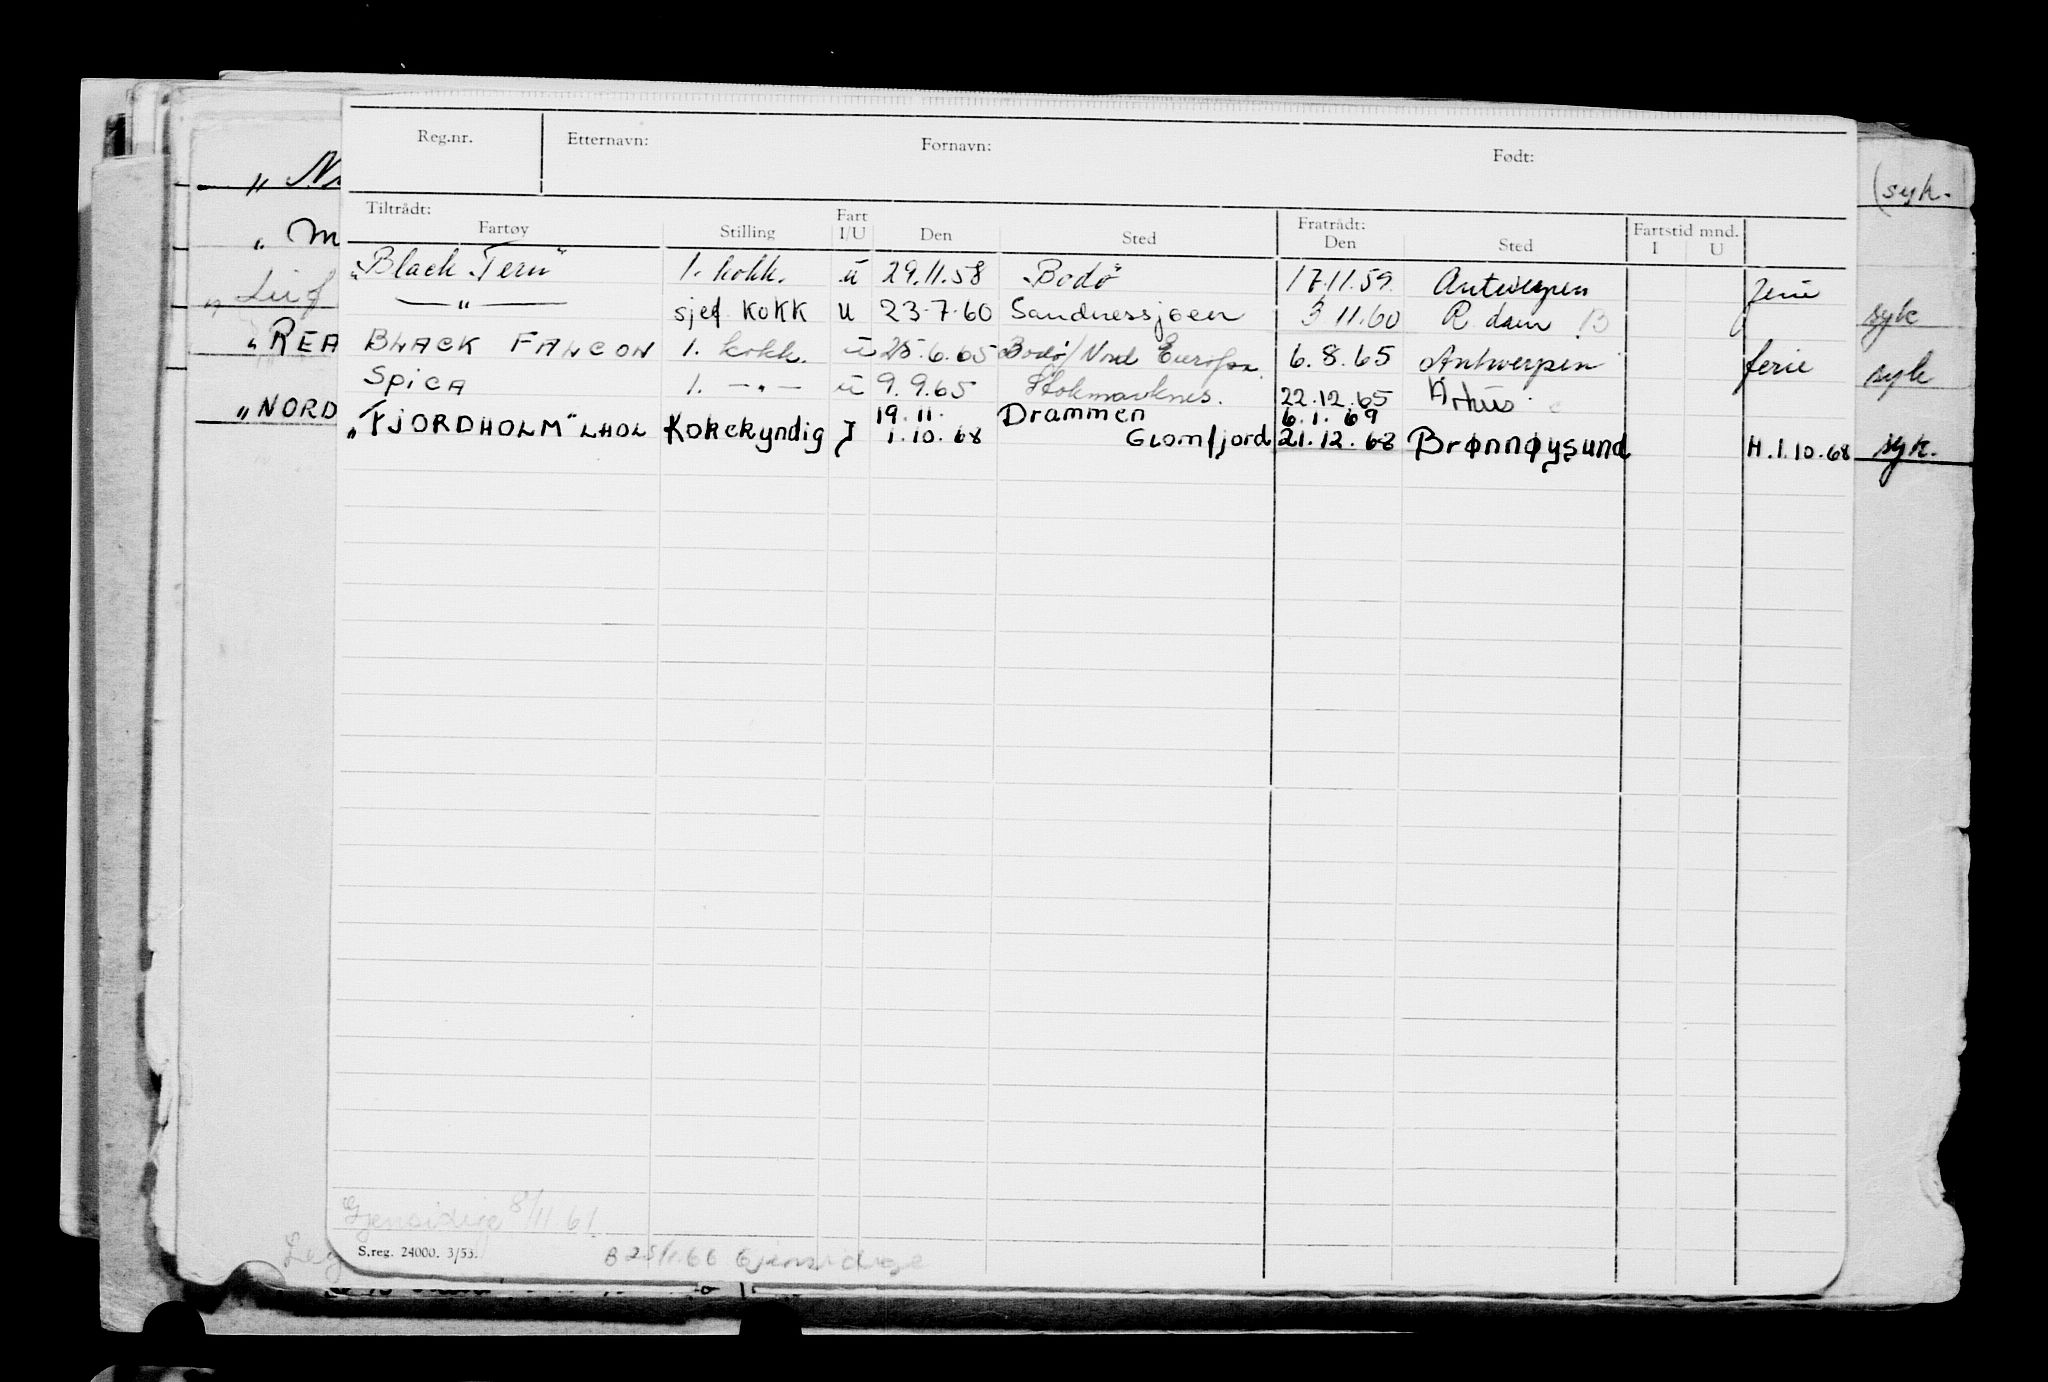 Reg.nr. Etternavn: Fornavn: Født:
Tiltrådt: Fartøy Stilling Fart I/U Den Sted Fratrådt: Den Sted Fartstid mnd. I U
„Black Tern" 1. kokk. u 29.11.58 Bodø 17.11.59 Antwerpen ferie
— " — sjef KOKK U 23-7-60 Sandnessjøen 3 11.60 R.dam B
BLACK FALCON 1. kokk. u 25.6.65 Bodø/Nord Europa. 6.8.65 Antwerpen ferie
SPICA 1. — " — u 9.9.65 Stokmarknes. 22.12.65 Århus
19.11. Drammen 6.1.69
„FJORDHOLM" LHOL Kokekyndig I 1.10.68 Glomfjord 21.12.68 Brønnøysund H.1.10.68
Gjensidige 8/11.61.
S.reg. 24000. 3/53.
Gjensidige
(syk.
„ M
syk
„REA
syk
„NORD
syk.